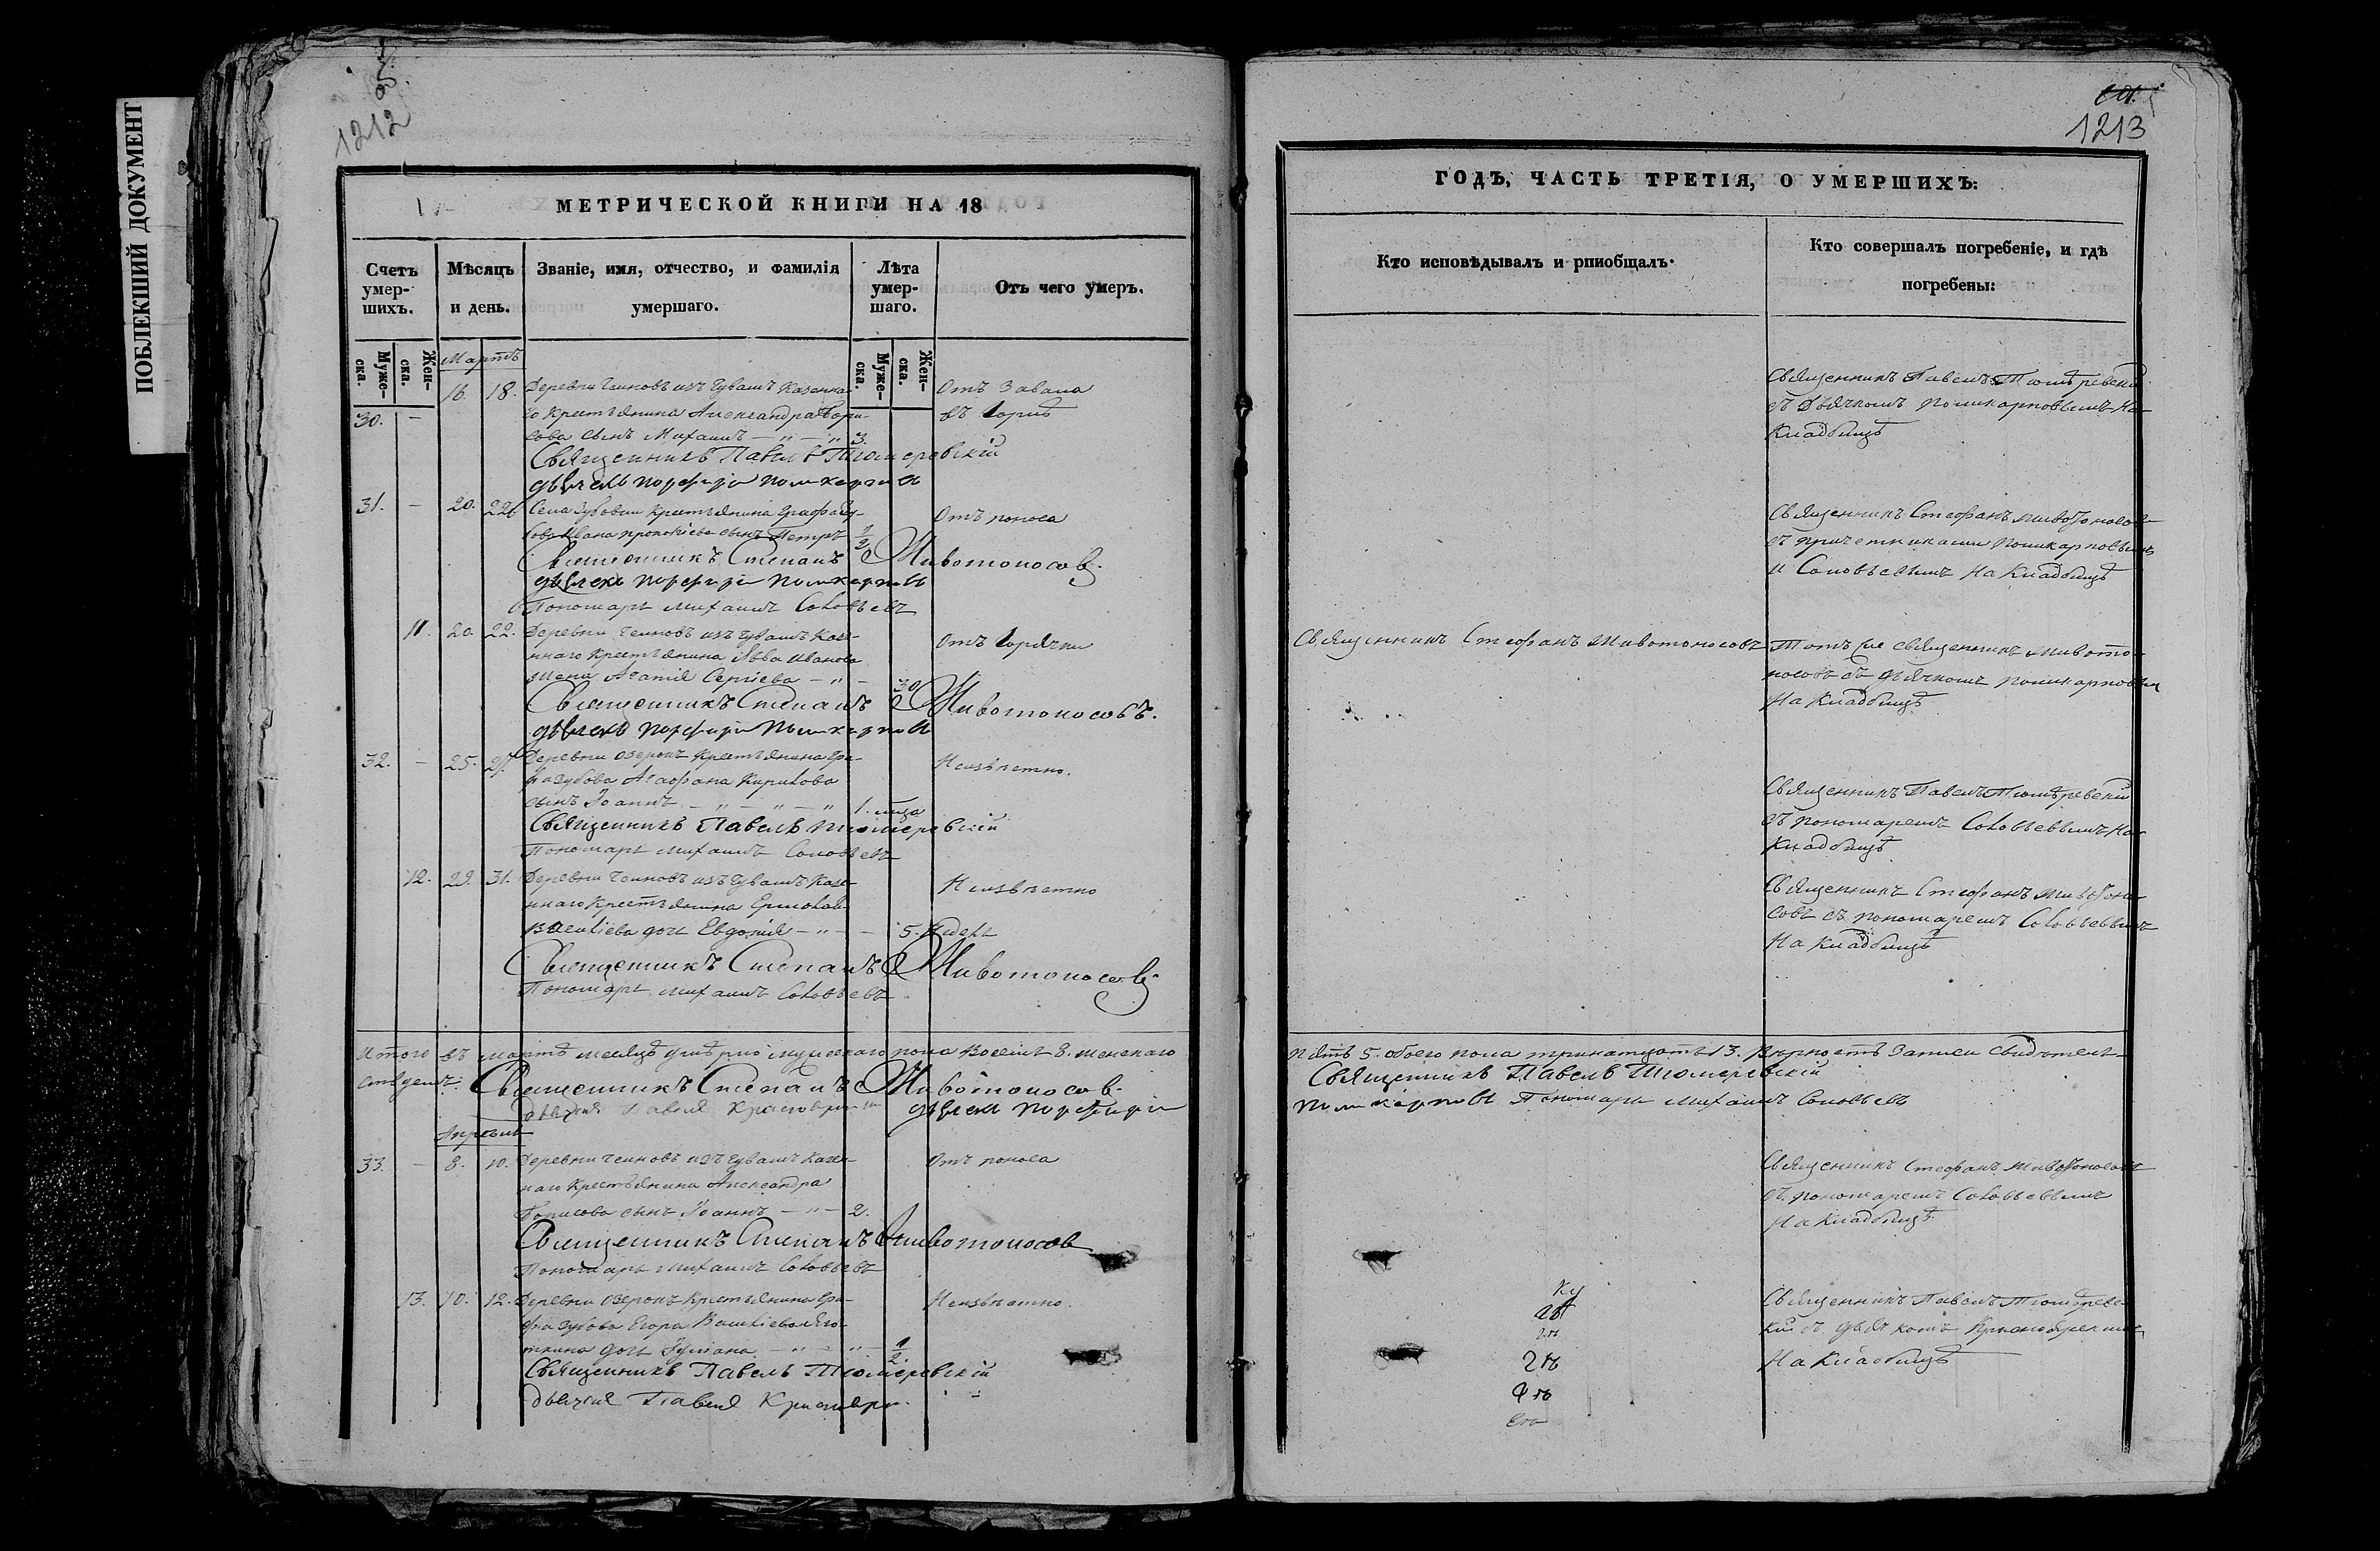 ПОБЛЕКШИЙ ДОКУМЕНТ
1212
МЕТРИЧЕСКОЙ КНИГИ НА 18
Счетъ умер-шихъ.
Мѣсяцъ и день.
Званіе, имя, отчество, и фамилія умершаго.
Лѣта умер-шаго.
Отъ чего умеръ.
Муже-ска.
Жен-ска.
Муже-ска.
Жен-ска.
Мартъ
30. — 16. 18. Деревни Чемновъ изъ Чувашъ Казенна-
го крестьянина Александра Бори-
сова сынъ Михаилъ — " — " 3.
Отъ Завала
въ горлѣ
Священникъ Павелъ Тюмеревскій
дьячекъ Порфирій Поликарповъ
31. — 20. 22. Села Зубовки крестьянина Графа Зу-
бова Ивана Прокопіева сынъ Петръ 1/2
Отъ поноса
Священникъ Степанъ Животоносовъ
дьячекъ Порфирій Поликарповъ
Пономарь Михаилъ Соловьевъ
11. 20. 22. Деревни Чемновъ изъ Чувашъ Казе-
ннаго крестьянина Льва Иванова
жена Агафія Сергіева — " — 30
Отъ горячки
Священникъ Степанъ Животоносовъ.
дьячекъ Порфирій Поликарповъ
32. — 25. 27. Деревни Озерокъ крестьянина Гра-
фа Зубова Агафона Кирилова
сынъ Іоаннъ — " — " — " 1. м-ца
Неизвѣстно.
Священникъ Павелъ Тюмеревскій
Пономарь Михаилъ Соловьевъ
12. 29. 31. Деревни Чемновъ изъ Чувашъ Казе-
ннаго крестьянина Ермолая
Василіева дочь Евдокія — " — 5. Недель
Неизвѣстно
Священникъ Степанъ Животоносовъ
Пономарь Михаилъ Соловьевъ
Итого въ мартѣ месяцѣ умѣрло мужескаго пола восемь 8. женскаго
ствуемъ: Священникъ Степанъ Животоносовъ
дьячекъ Порфирій
Апрель
33. — 8. 10. Деревни Чемновъ изъ Чувашъ Казен-
наго крестьянина Александра
Борисова сынъ Іоаннъ — " — 2.
Отъ поноса
Священникъ Степанъ Животоносовъ
Пономарь Михаилъ Соловьевъ
13. 10. 12. Деревни Озерокъ крестьянина Гра-
фа Зубова Егора Василіева
дочь Іуліана — " — " — 1/2
Неизвѣстно.
Священникъ Павелъ Тюмеревскій
1213
ГОДЪ, ЧАСТЬ ТРЕТІЯ, О УМЕРШИХЪ:
Кто исповѣдывалъ и рпиобщалъ.
Кто совершалъ погребеніе, и гдѣ погребены:
Священникъ Павелъ Тюмѣревскій
съ дьячкомъ Поликарповымъ На
Кладбищѣ
Священникъ Стефанъ Животоносовъ
съ причетниками Поликарповымъ
и Соловьевымъ На Кладбищѣ
Священникъ Стефанъ Животоносовъ
Тотъ же священникъ Живото-
носовъ съ дьячкомъ Поликарповым
На Кладбищѣ
Священникъ Павелъ Тюмѣревскій
съ пономаремъ Соловьевымъ На
Кладбищѣ
Священникъ Стефанъ Животоно-
совъ съ пономаремъ Соловьевымъ
На Кладбищѣ
пять 5. обоего пола тринатцать 13. Верность Записи Свидѣтель-
Священникъ Павелъ Тюмеревскій
Поликарповъ Пономарь Михаилъ Соловьевъ
Священникъ Стефанъ Животоносовъ
съ пономаремъ Соловьевымъ
На Кладбищѣ
Священникъ Павелъ Тюмѣревс-
кій съ дьячкомъ
На Кладбищѣ